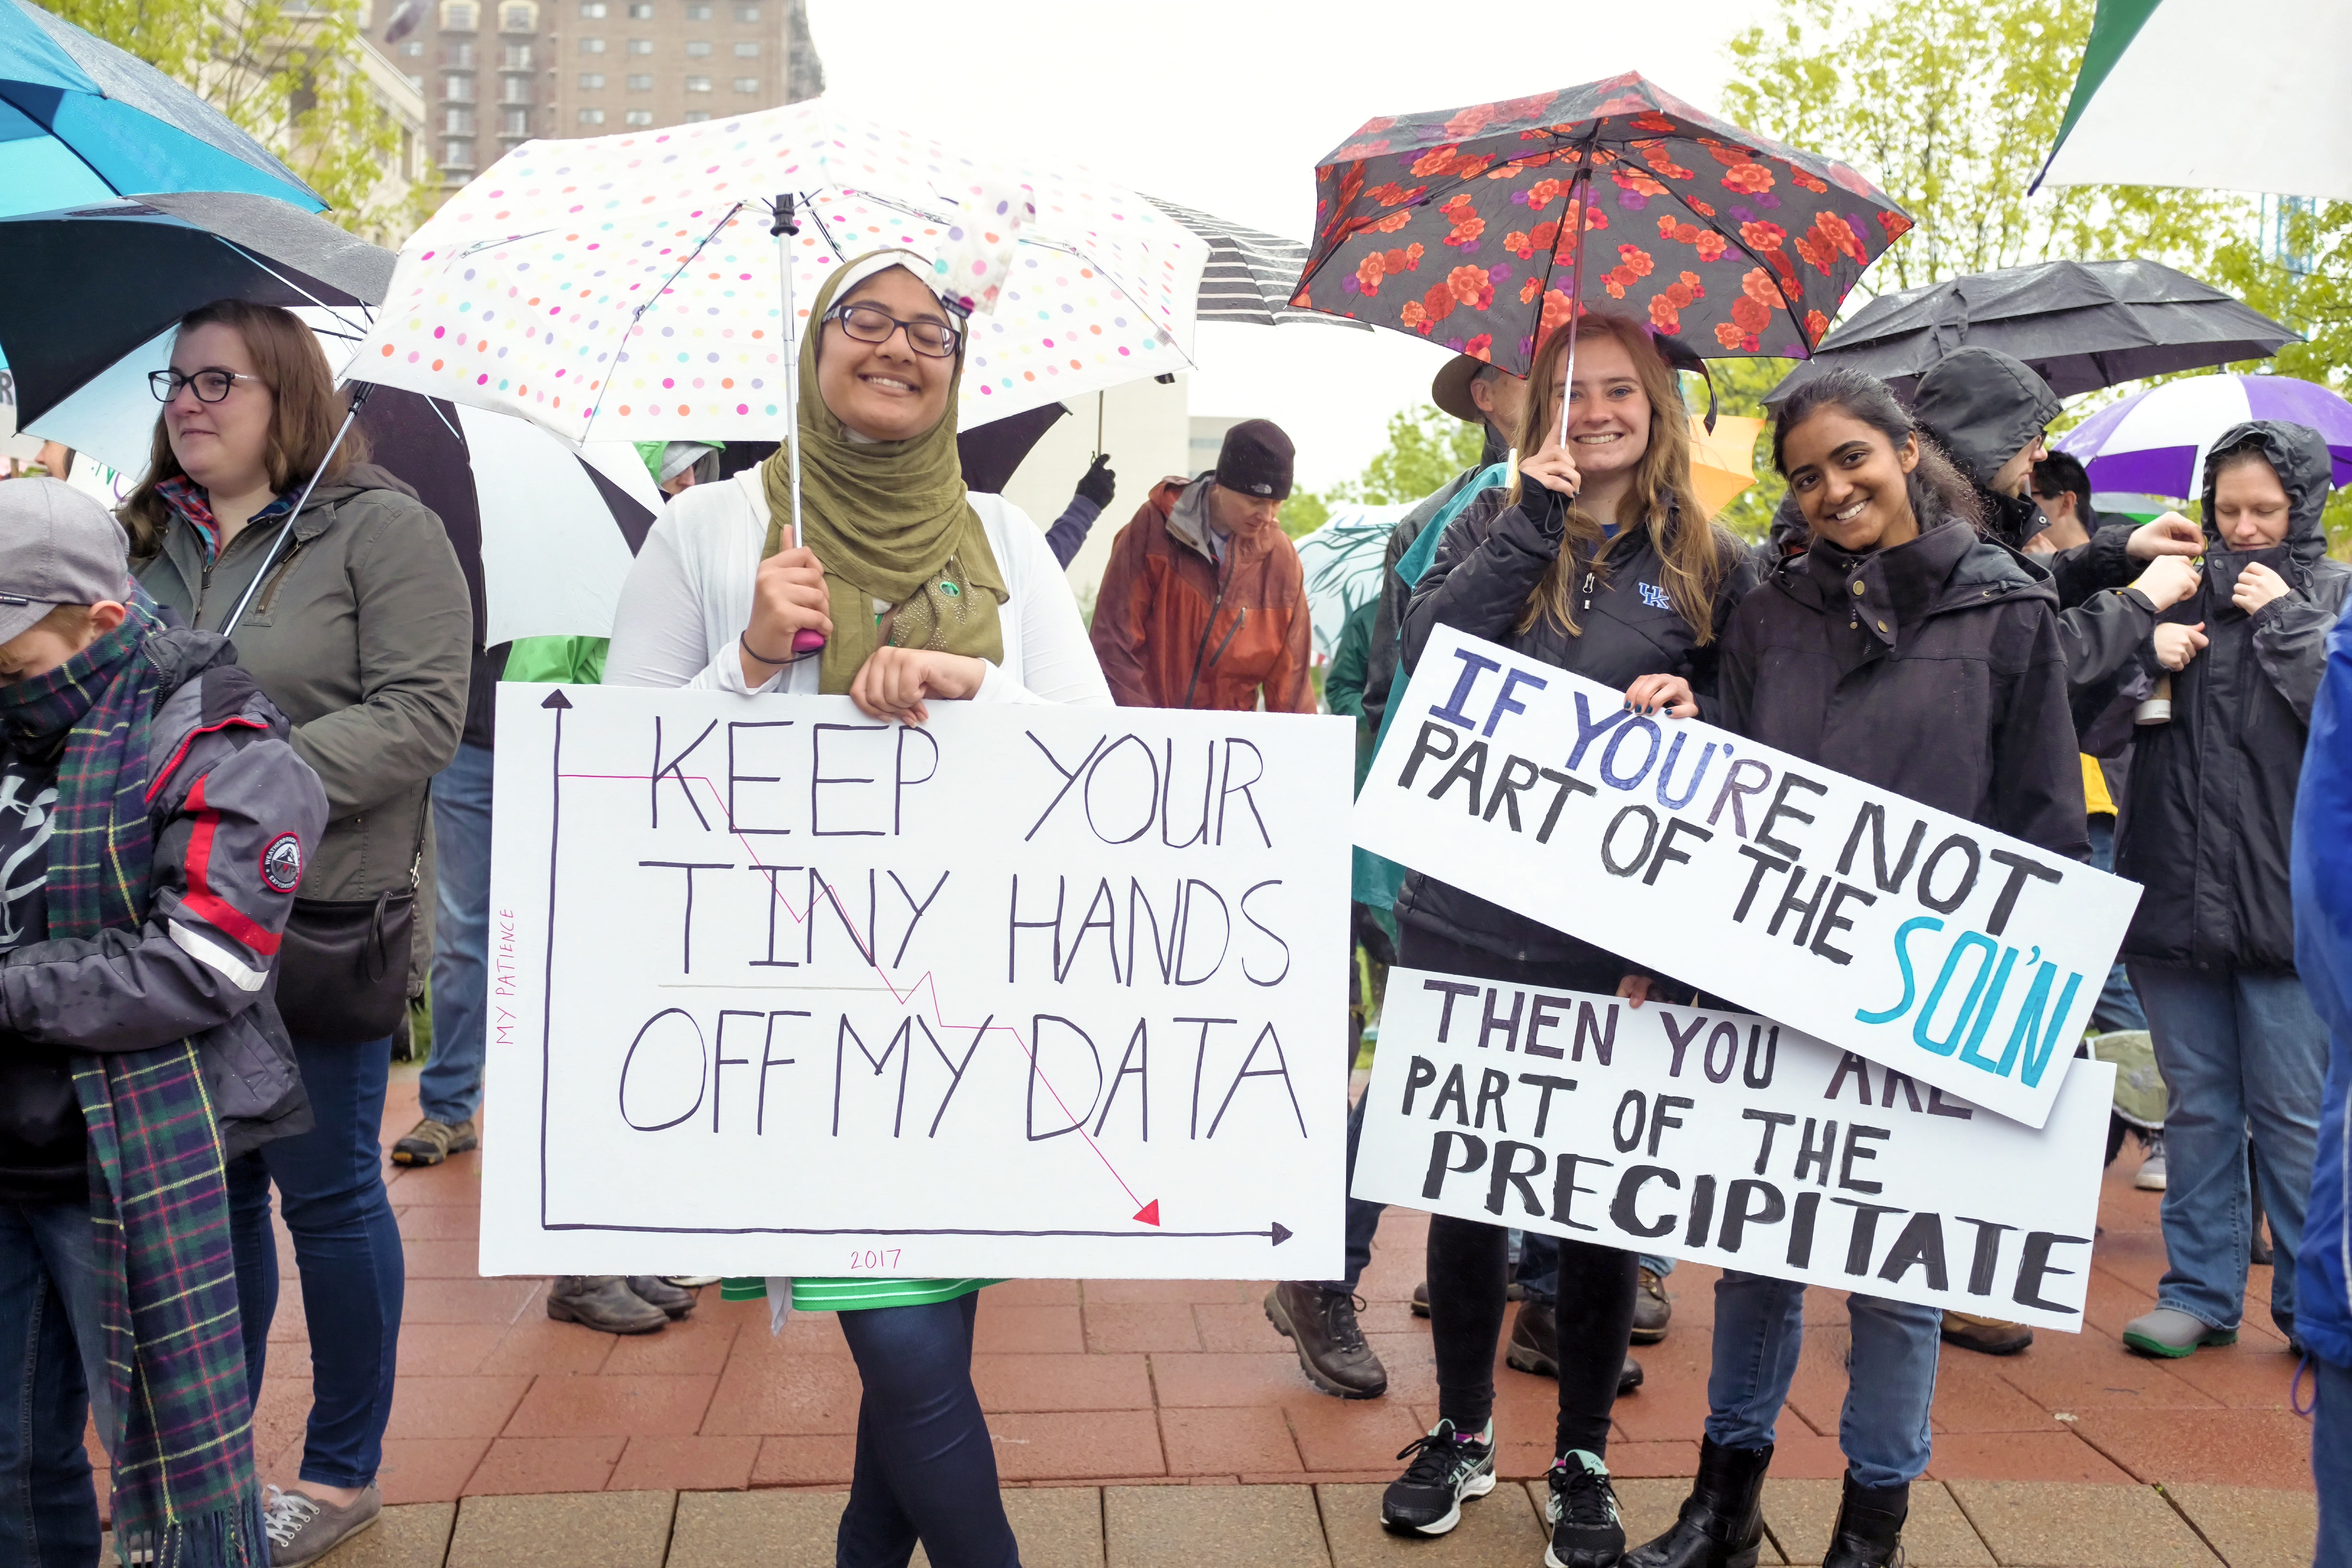 MY PATIENCE
KEEP YOUR
TINY HANDS
OFF MY DATA
2017
IF YOU'RE NOT
PART OF THE SOL'N
THEN YOU ARE
PART OF THE
PRECIPITATE
UK
WEATHERPROOF
EXPEDITION